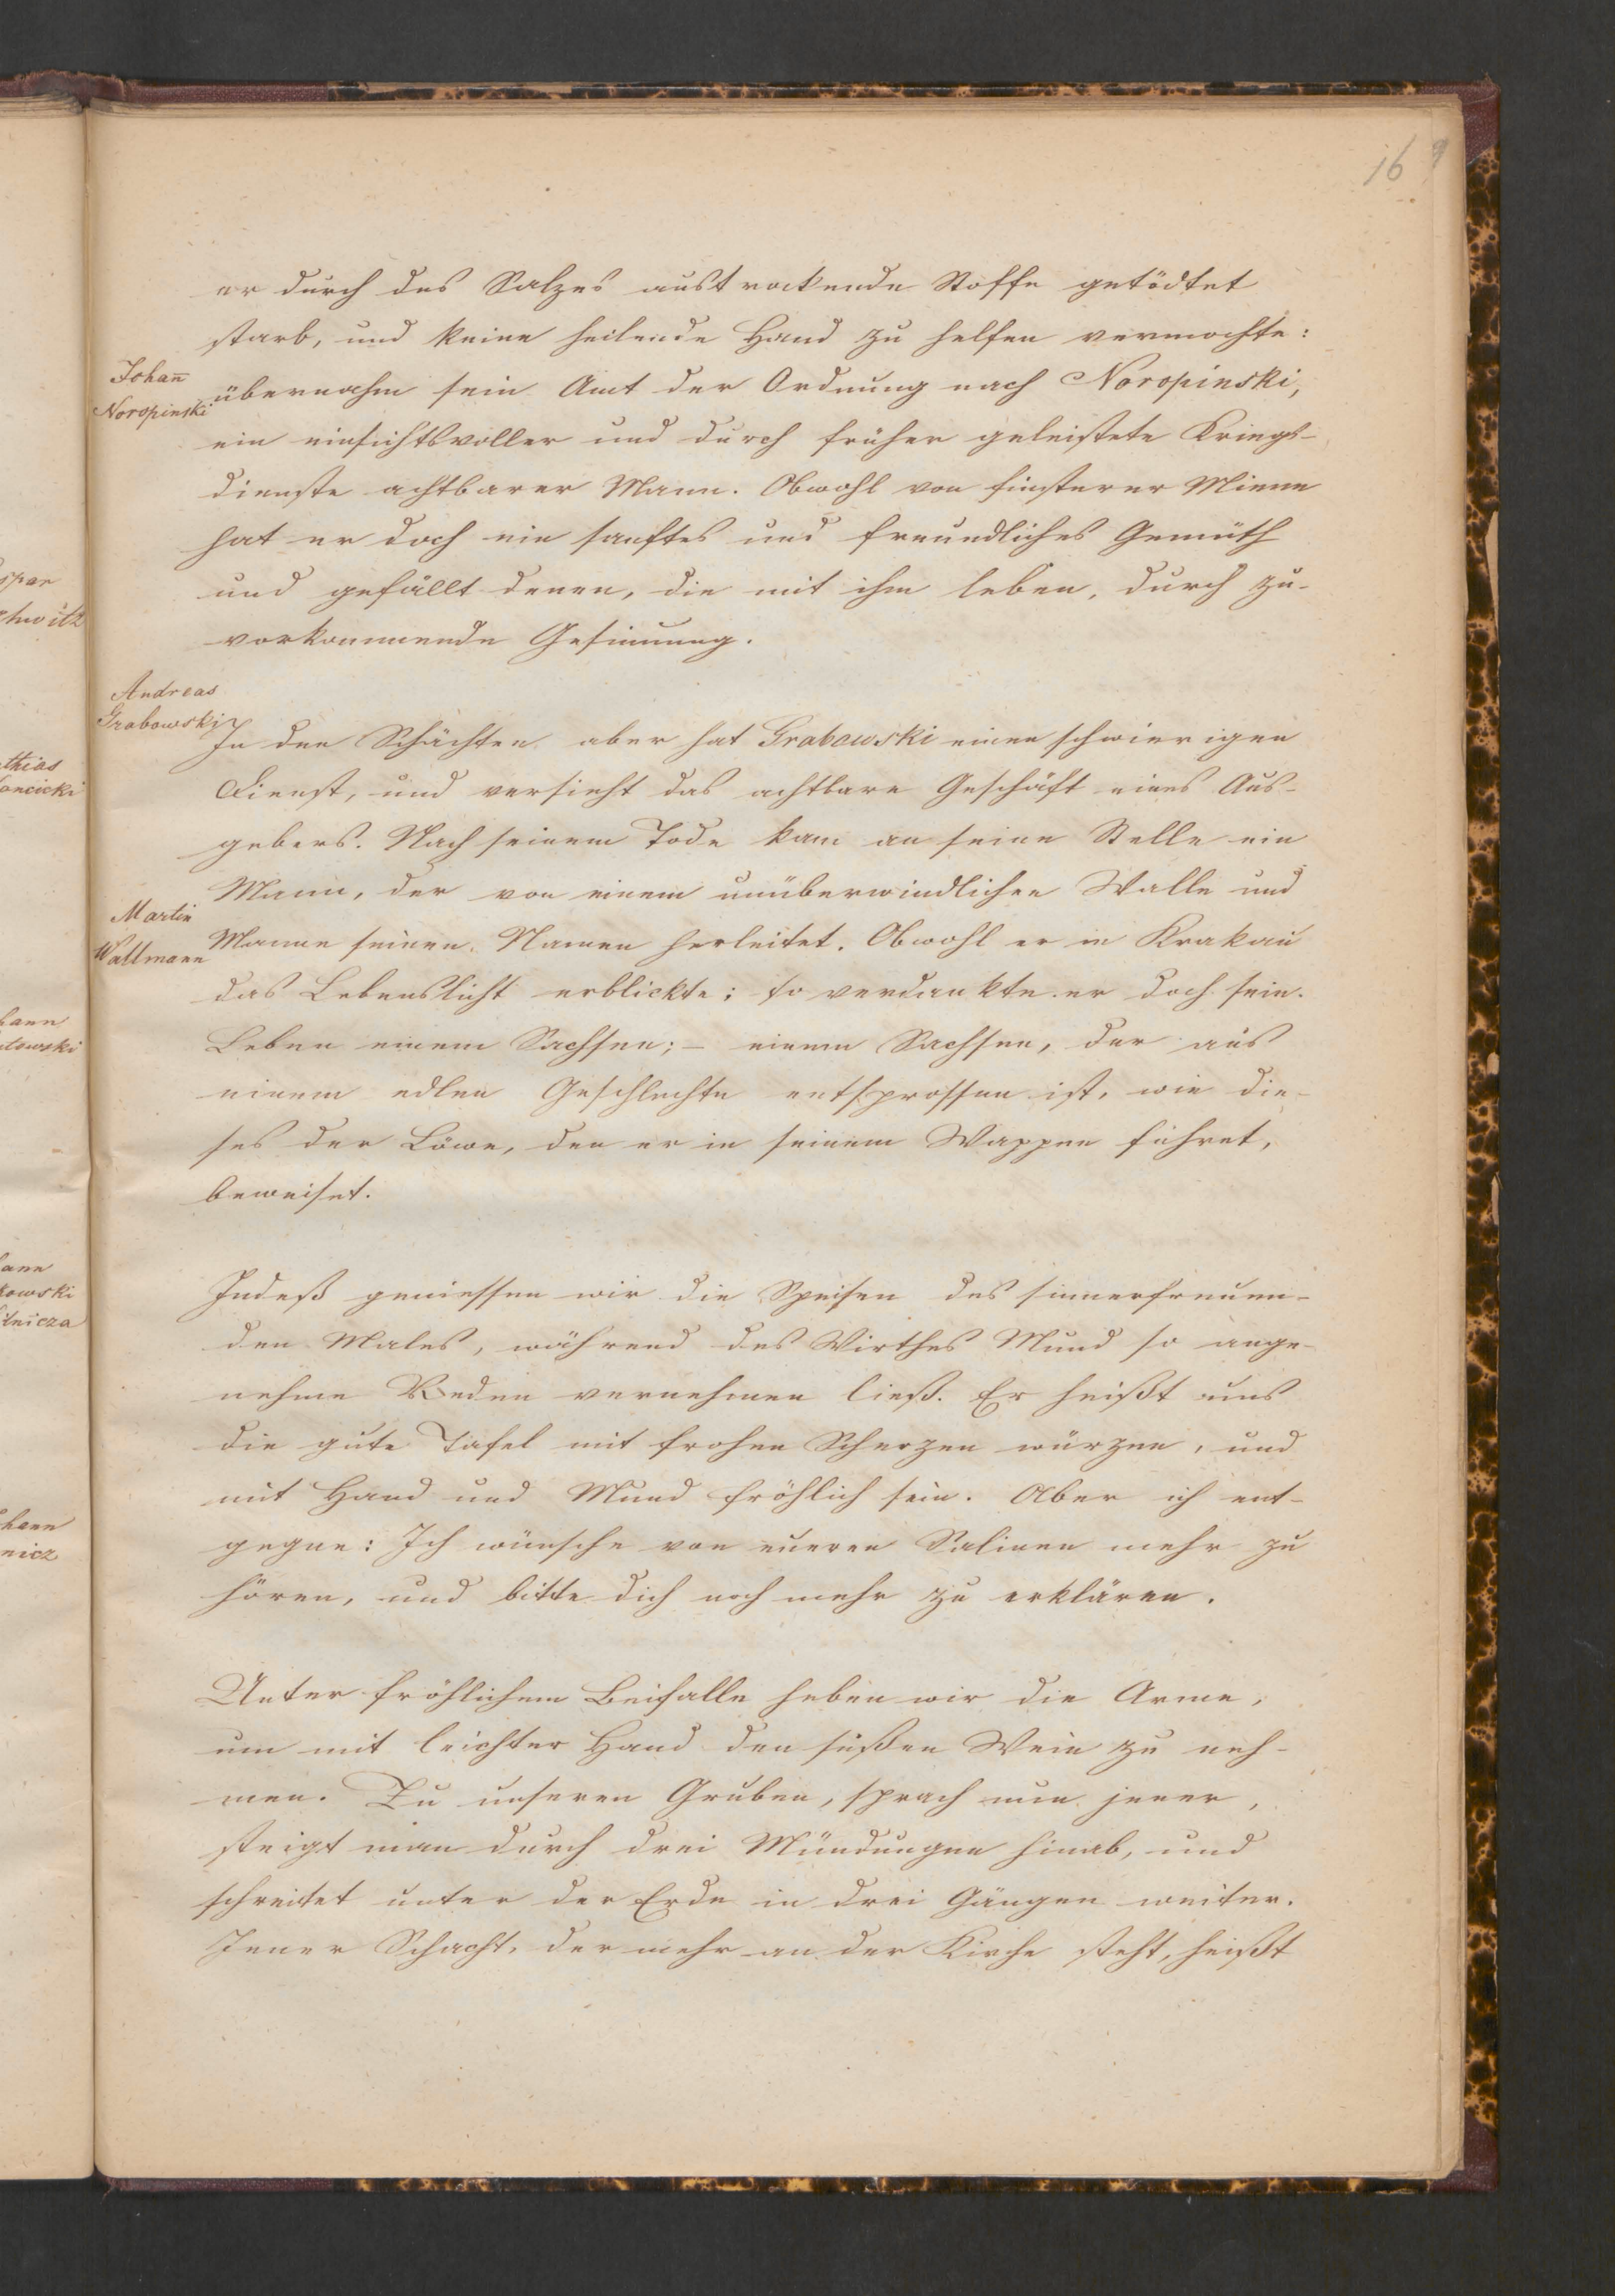 169
er durch des Salzes austrockende Stoffe getödtet
starb, und keine heilende Hand zu helfen vermochte:
Johan̄
Noropinski
übernahm sein Amt der Ordnung nach Noropinski,
ein einsichtsvoller und durch früher geleistete Kriegs-
dienste achtbarer Mann. Obwohl von finsterer Miene
hat er doch ein sanftes und freundliches Gemüth
und gefällt denen, die mit ihm leben, durch zu-
vorkommende Gesinnung.
Andreas
Grabowski
In den Schächten aber hat Grabowski einen schwierigen
Dienst, und versieht das achtbare Geschäft eines Aus-
gebers. Nach seinem Tode kam an seine Stelle ein
Mann, der von einem unüberwindlichen Walle und
Martin
Wallmann
Manne seinen Namen herleitet. Obwohl er in Krakau
das Lebenslicht erblickte; so verdankte er doch sein
Leben einem Sachsen; – einem Sachsen, der aus
einem edlen Geschlechte entsprossen ist, wie die-
ses der Löwe, den er in seinem Wappen führet,
beweiset.
Indeß geniessen wir die Speisen des sinnerfreuen-
den Males, während des Wirthes Mund so ange-
nehme Reden vernehmen ließ. Er heißt uns
die gute Tafel mit frohen Scherzen würzen, und
mit Hand und Mund fröhlich sein. Aber ich ent-
gegne: Ich wünsche von eueren Salinen mehr zu
hören, und bitte dich noch mehr zu erklären.
Unter fröhlichem Beifalle heben wir die Arme,
um mit leichter Hand den süßen Wein zu neh-
men. Zu unseren Gruben, sprach nun jener,
steigt man durch drei Mündungen hinab, und
schreitet unter der Erde in drei Gängen weiter.
Jener Schacht, der mehr an der Kirche steht, heißt